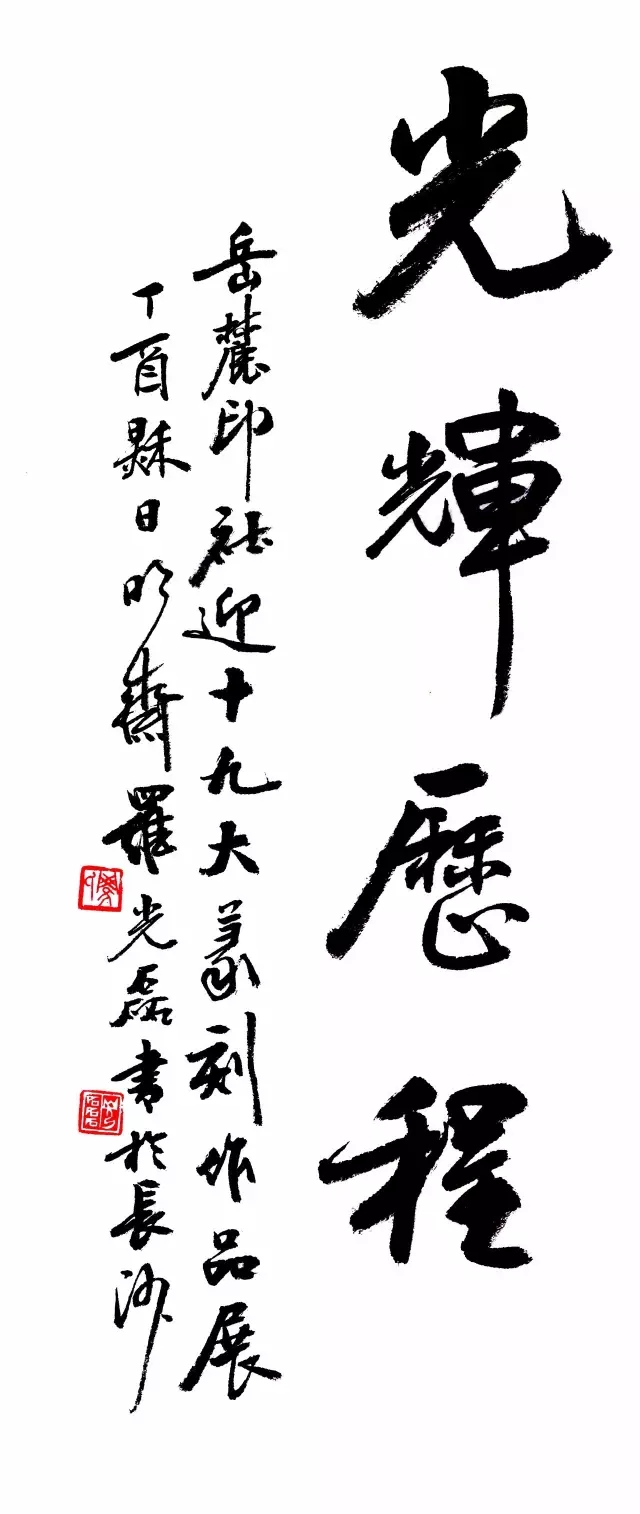 光輝歷程
岳麓印社迎十九大篆刻作品展
丁酉日齋羅光磊書於長沙